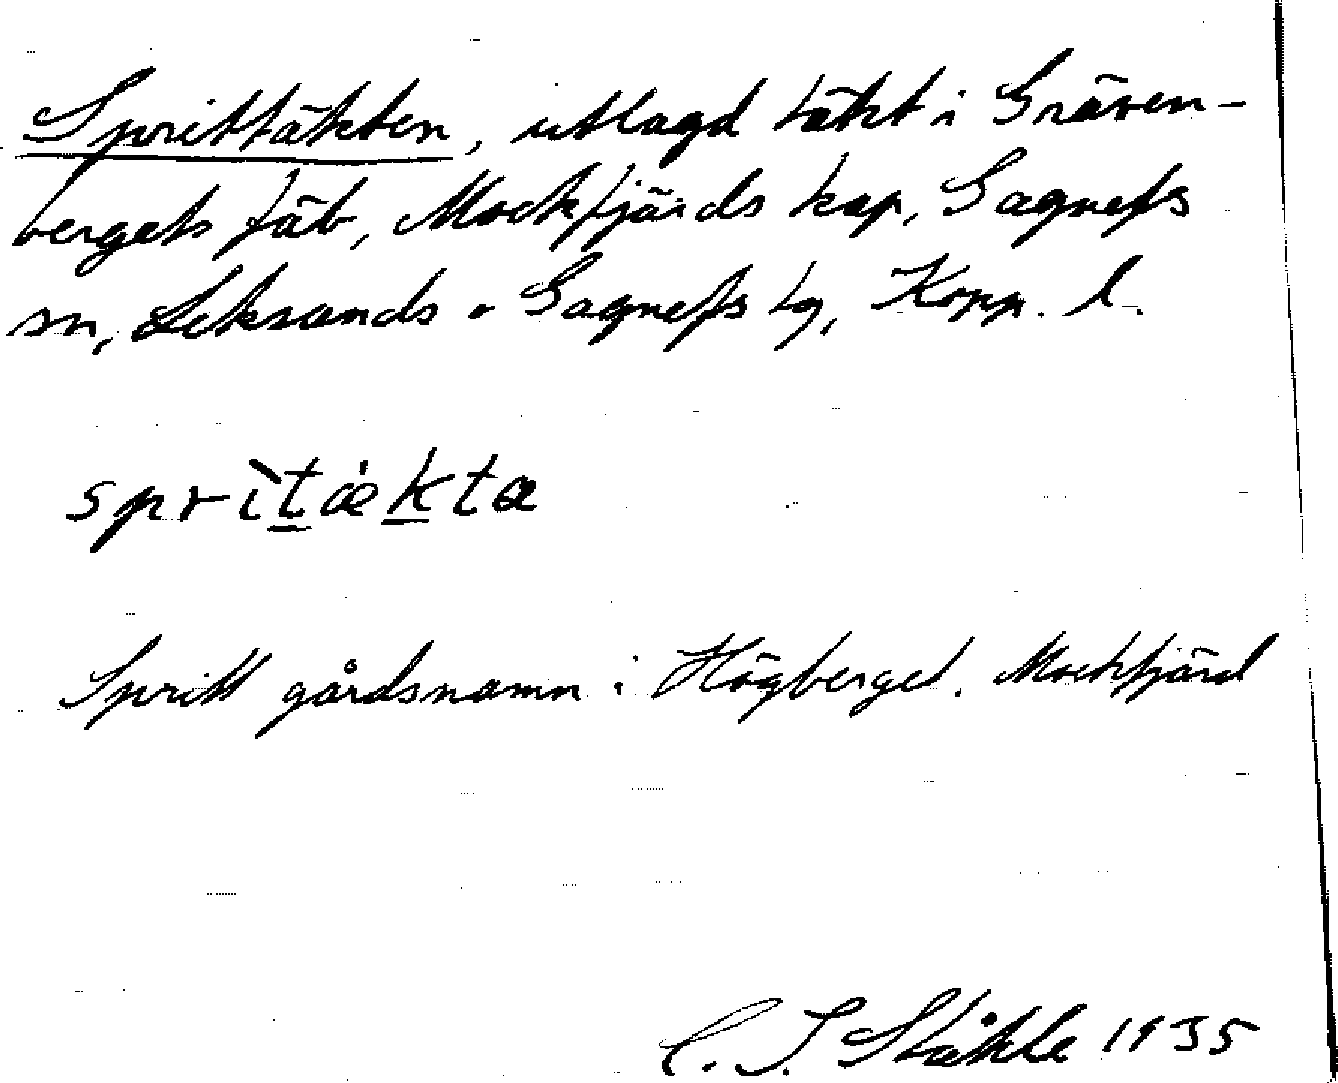 Sprittäkten, utlagd täkt i Gräven-
bergets fäb, Mockfjärds kap, Gagnefs
sn, Leksands o Gagnefs tg, Kopp. l.
sprìtæ̍kta
Spritt gårdsnamn i Högberget. Mockfjärd
C. I. Ståhle 1935